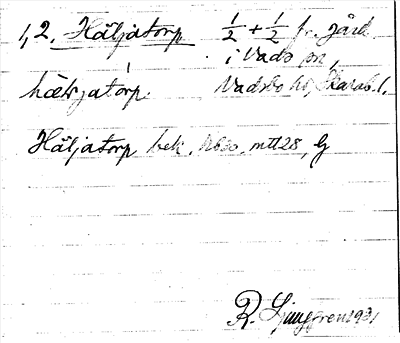 1,2. Häljatorp 1/2 + 1/2 fr. gård
i Vads sn,
hæljatórp. Vadsbo hd, Skarab. l.
Häljatorp bek. mtl 28, G
R. Ljunggren 1931